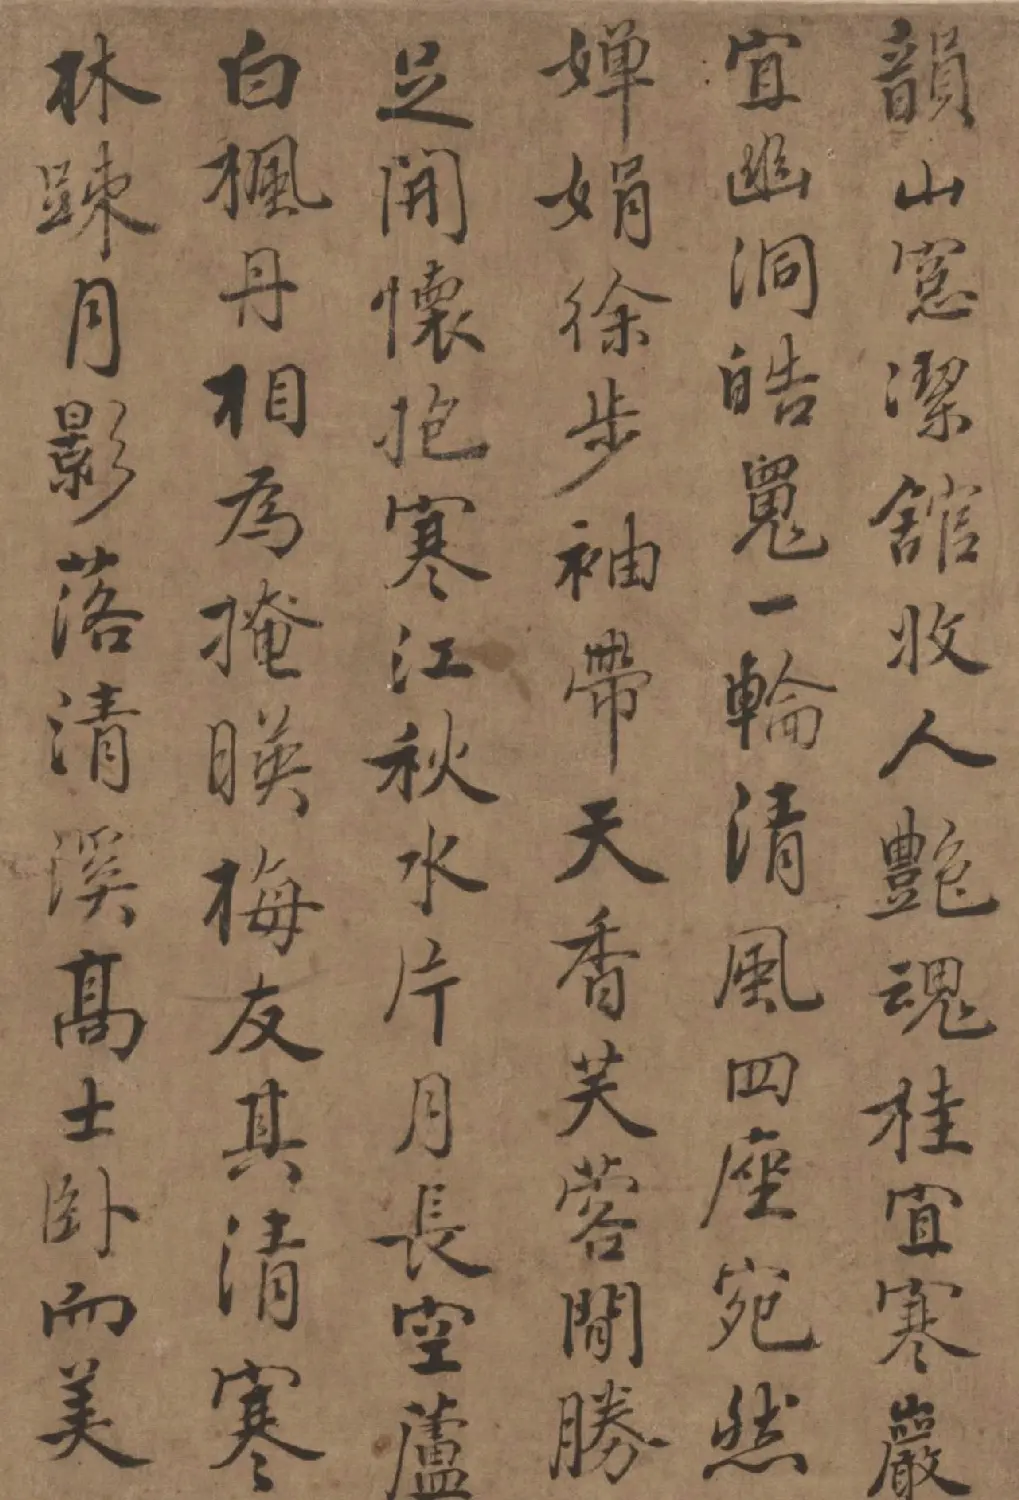 韻山窓潔館收人艶魂桂宜寒巖
宜幽洞皓魄一輪清風四座宛然
嬋娟徐步袖帶天香芙蓉閒勝
足開懷抱寒江秋水片月長空蘆
白楓丹相為掩暎梅友其清寒
林踈月影落清溪高士臥而美